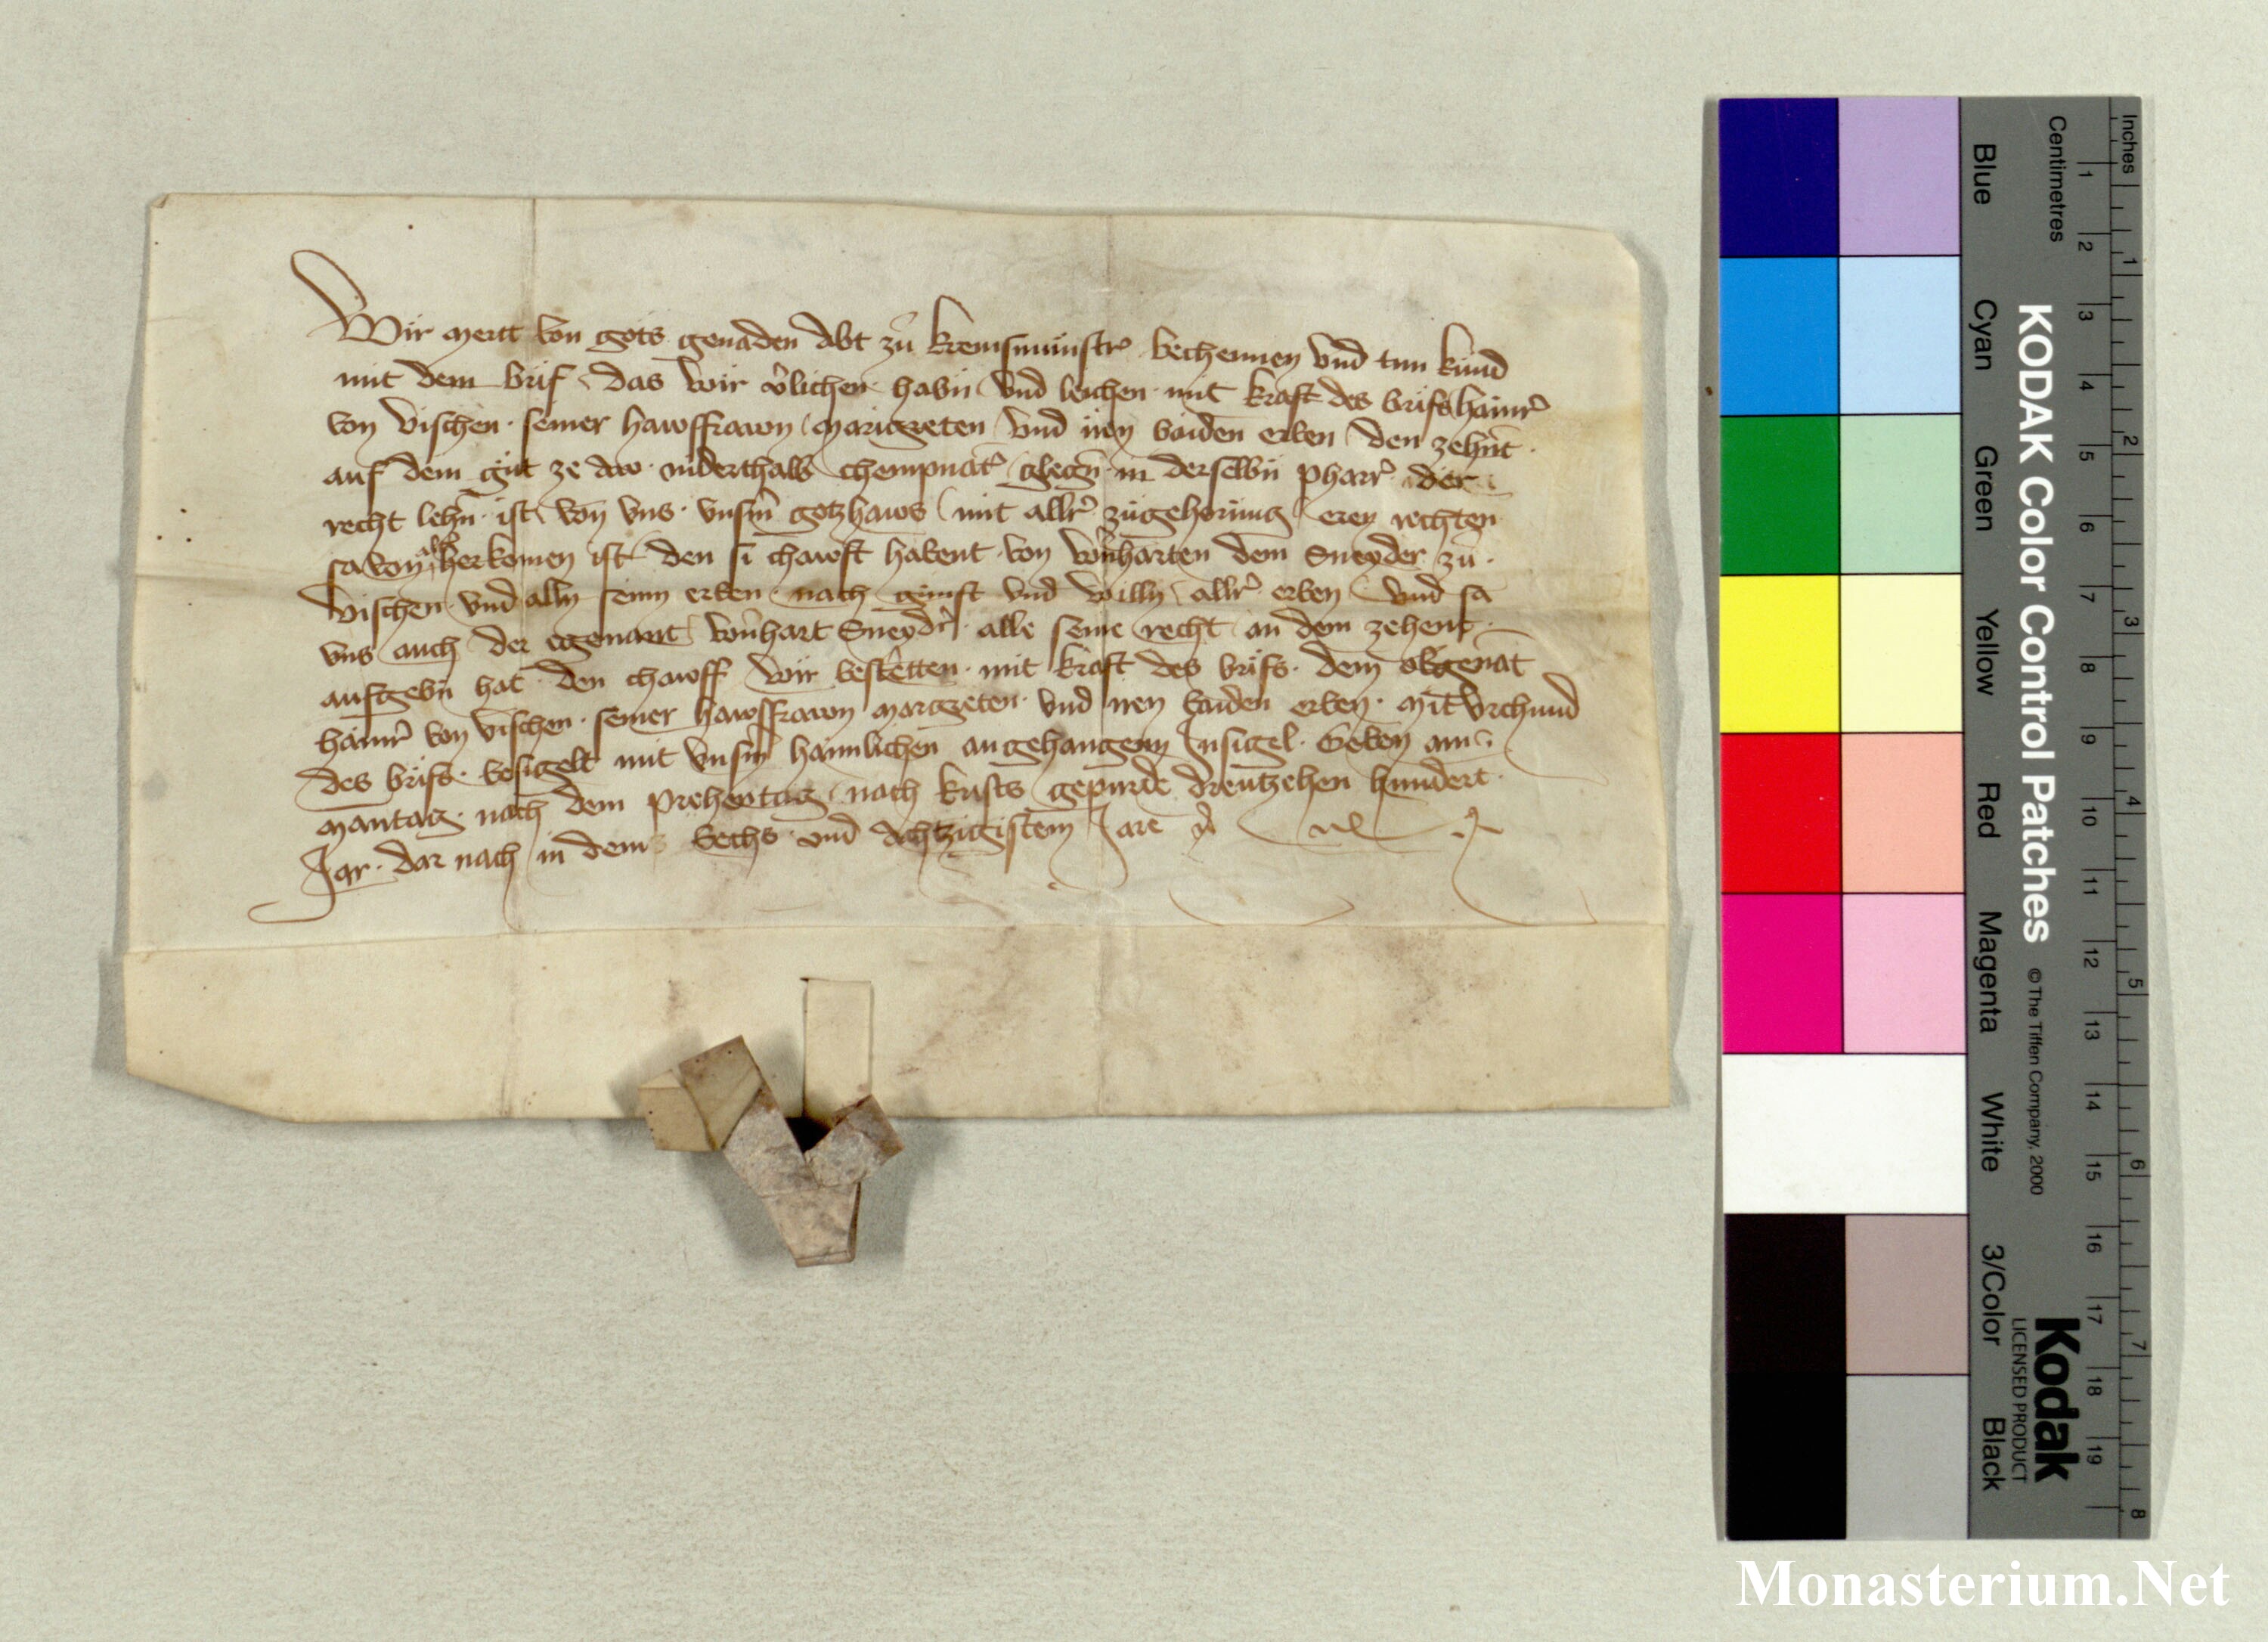 Wir mertt von gots genaden Abt zů kremsmůnstr̉ bechennen vnd tun kůnd
mit dem brif das wir v̉lichen habn̄ vnd leichen mit kraft des brifs hainr̉
von vischen seiner hawsfrawn margreten vnd irn baiden erben den zehn̄t
auf dem gůt ze Aw niderthalb chempnat̉ glegn̄ in derselbn̄ pharr̉ der
recht lehn̄ ist von vns vnsm̄ gotzhaws mit allr̉ zůgehorůng eren rechten
sa von alt̉ herkomen ist den si chawft habent von wernharten dem Sneyder zů
vischen vnd alln seinn erben nach gůnst vnd willn allr̉ erben vnd sa
vns auch der egenant wernhart Sneyder alle seine recht an dem zehent
aufgebn̄ hat den chawff wir bestetten mit kraft des brifs dem obgenāt
hainr̉ von vischen seiner hawsfrawn margreten vnd iren baiden erben mit vrchund
des brifs besigelt mit vnsm̄ haimlichen angehangenn Insigel Geben am
Mantag nach dem prehentag nach krists gepurde dreutzehen hundert
Jar dar nach in dem Sechs vnd Achtzigistem Jare
KODAK Color Control Patches
© The Tiffen Company, 2000
Kodak
LICENSED PRODUCT
Inches
1 2 3 4 5 6 7 8
Centimetres
1 2 3 4 5 6 7 8 9 10 11 12 13 14 15 16 17 18 19
Blue
Cyan
Green
Yellow
Red
Magenta
White
3/Color
Black
Monasterium.Net